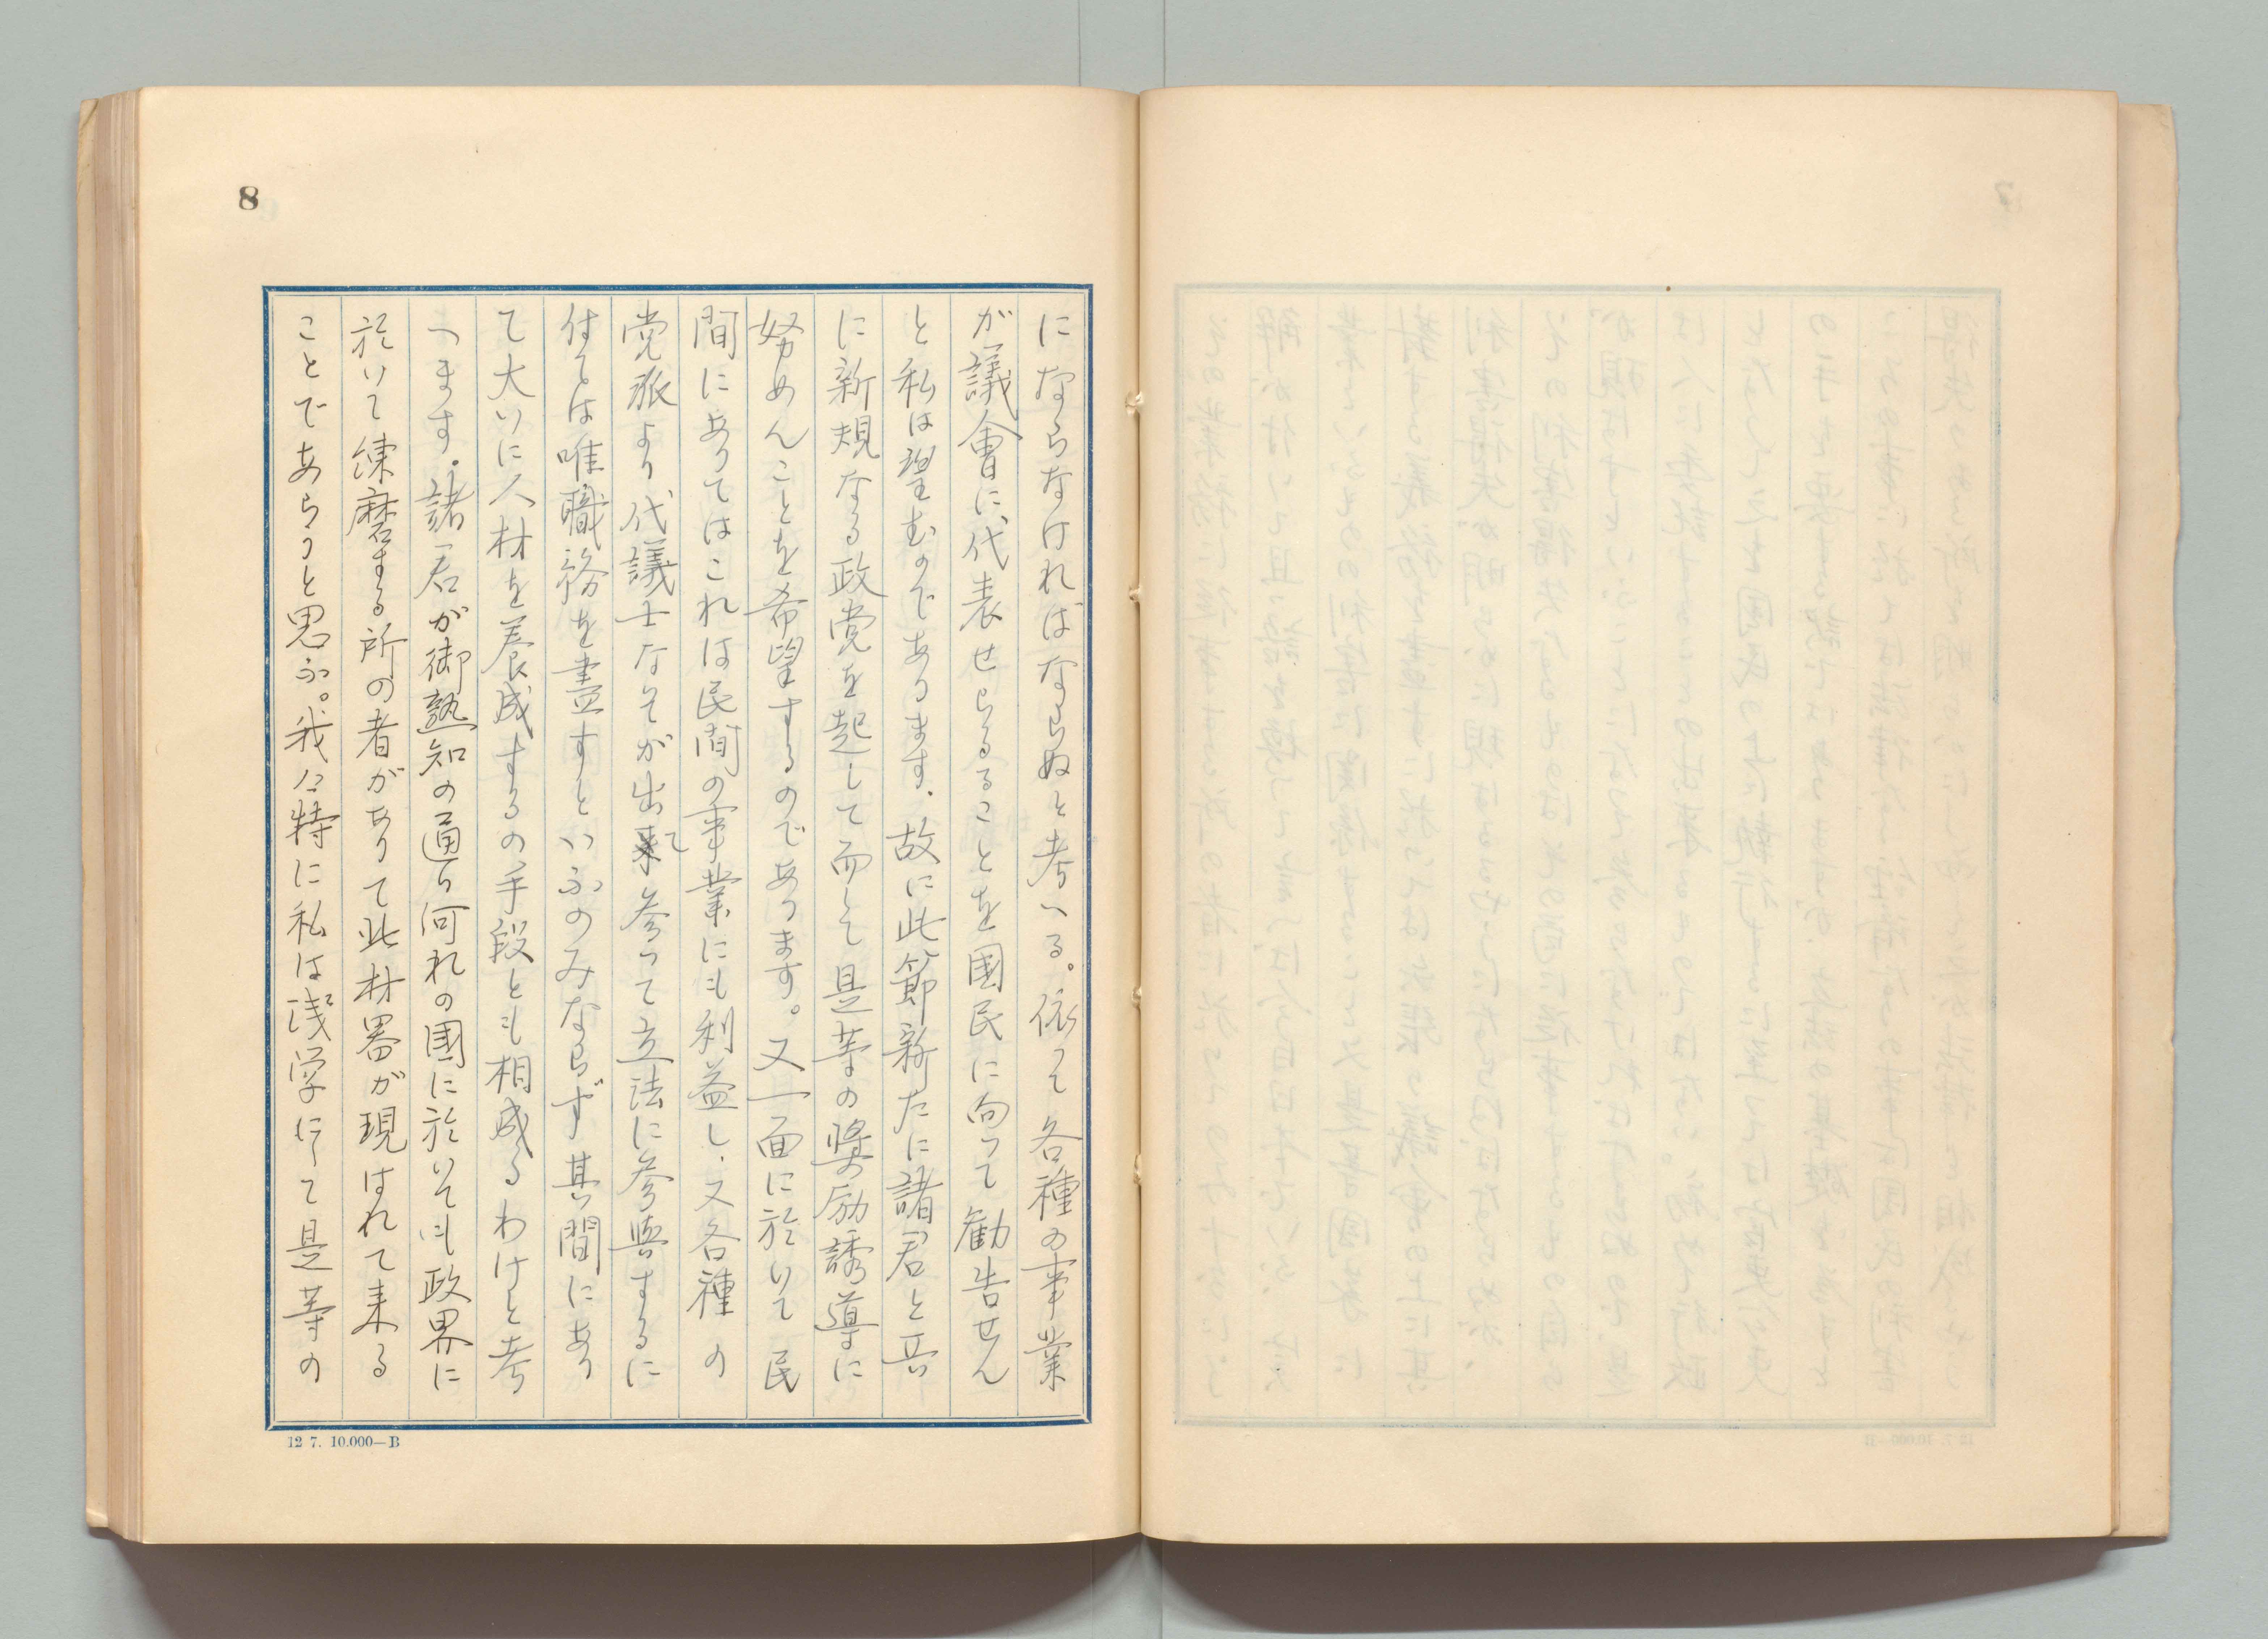 8
にならなければならぬと考へる。依って各種の事業
が議會に代表せらるることを國民に向って勧告せん
と私は望むのであります。故に此節新たに諸君と共
に新規なる政党を起して而して是等の奬励誘導に
努めんことを希望するのであります。又一面に於いて民
間にありてはこれは民間の事業にも利益し、又各種の
党派より代議士なそが出来て参って立法に参與するに
付ては唯職務を盡すといふのみならず其間にあり
て大いに人材を養成するの手段とも相成るわけと考
へます。諸君が御熟知の通り何れの國に於いても政界に
於いて練磨する所の者がありて此材器が現はれて来る
ことであらうと思ふ。我々特に私は浅学にして是等の
12 7. 10.000—B